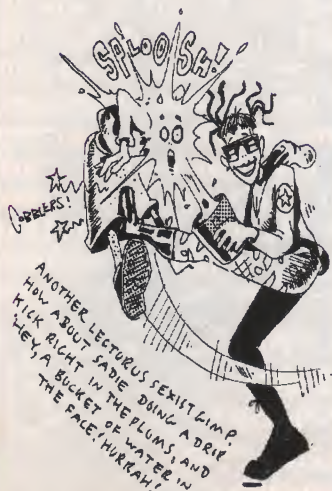 SPLOOSH!
COBBLERS!
ANOTHER LECTURUS SEXIST GIMP.
HOW ABOUT SADIE DOING A DRIP
KICK RIGHT IN THE PLUMS, AND
HEY, A BUCKET OF WATER IN
THE FACE! HURRAH!